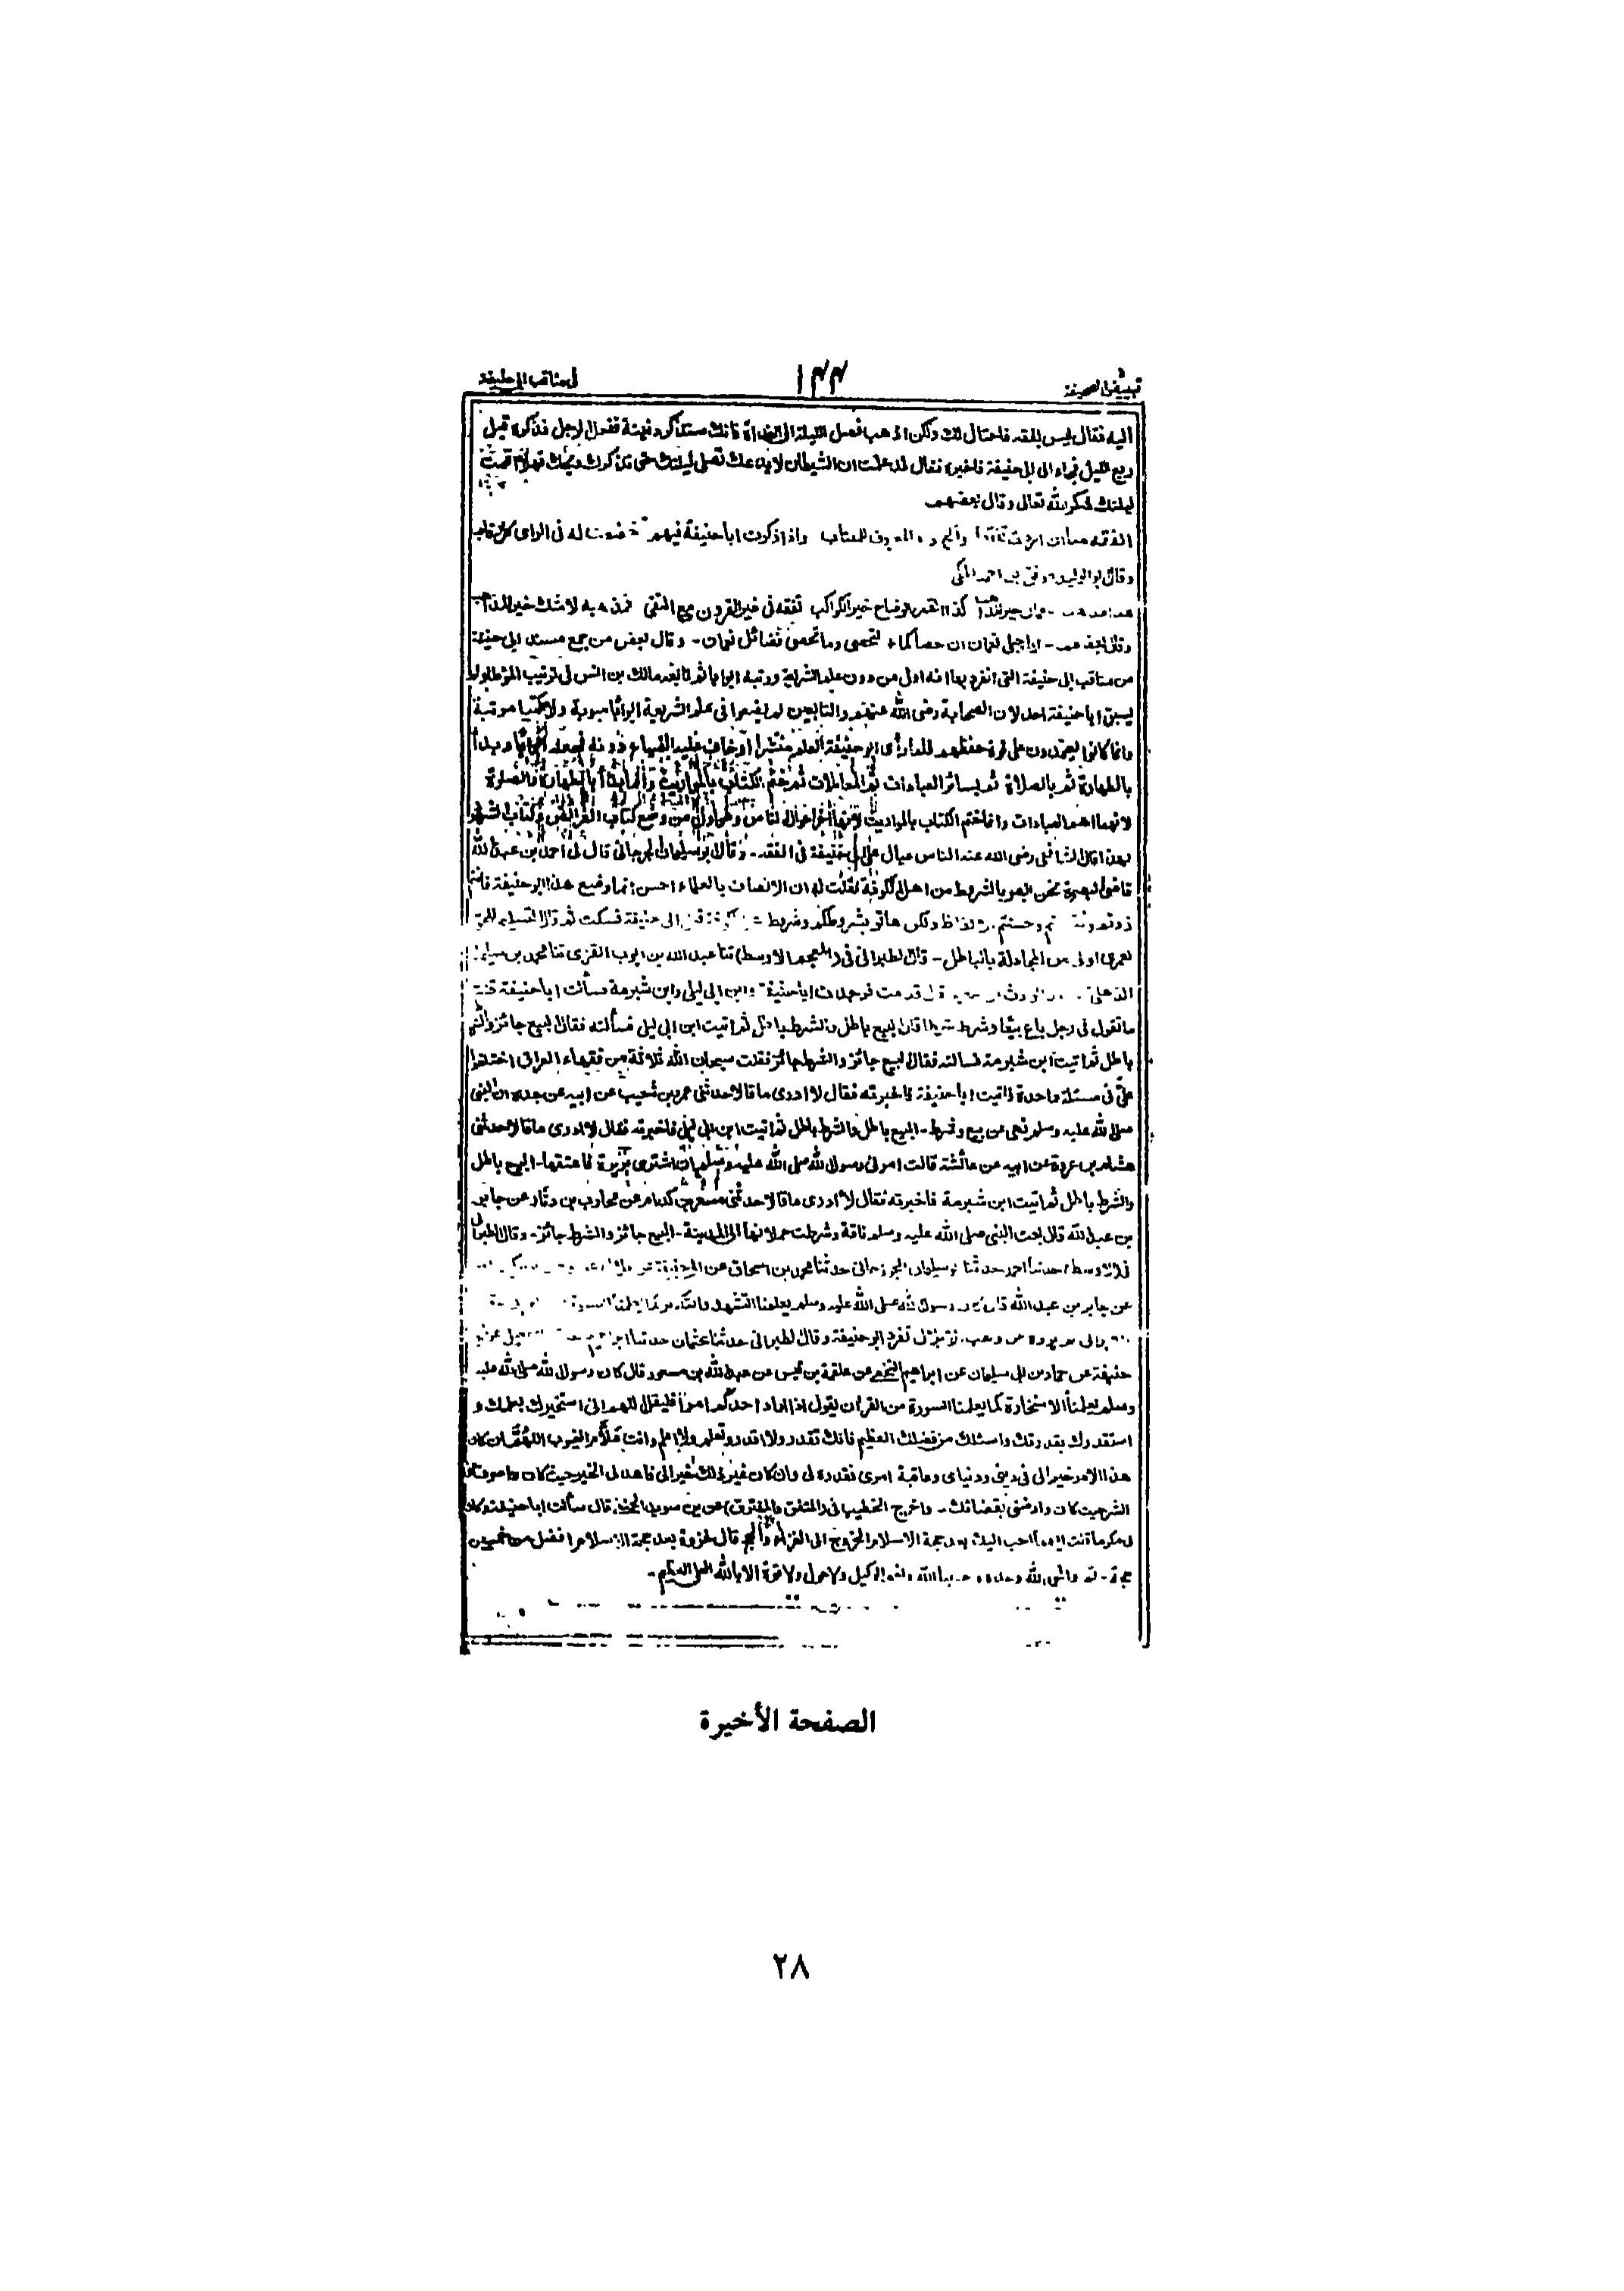 تبييض الصحيفة
١٣٣
في مناقب ابي حنيفة
اليه فقال ليس بفقه فاحتال لك ولكن اذهب فصل الليلة الى الغداة فانك ستذكره ففعل الرجل فذكره قبل
ربع الليل فجاء الى ابي حنيفة فاخبره فقال قد علمت ان الشيطان لا يدعك تصلي ليلتك حتى تذكرك ويحك فهلا اتممت
ليلتك شكر الله تعالى وقال بعضهم
الفقه واذا ذكرت ابا حنيفة فيهم خضعت له في الراى كل رقاب
وقال ابو الموفق بن احمد المكي
كذا القمر الوضاح خير الكواكب تفقه في خير القرون مع التقى
وقال بعضهم - ايا جبلى نعمان ان حصاكما لتحصى وما تحصى فضائل نعمان - وقال بعض من جمع مسند ابي حنيفة
من مناقب ابي حنيفة التي انفرد بها انه اول من دون علم الشريعة ورتبه ابوابا ثم تابعه مالك بن انس في ترتيب المؤطا ولم
يسبق ابا حنيفة احد لان الصحابة رضى الله عنهم والتابعين لم يضعوا في علم الشريعة ابوابا مبوبة ولا كتبا مرتبة
وانما كانوا يعتمدون على قوة حفظهم فلما رأى ابو حنيفة العلم منتشرا وخاف عليه الضياع دونه فجعله ابوابا وبدأ
بالطهارة ثم بالصلاة ثم بسائر العبادات ثم المعاملات ثم ختم الكتاب بالمواريث وانما بدأ بالطهارة والصلوة
لانهما اهم العبادات وانما ختم الكتاب بالمواريث لانها آخر احوال الناس وهو اول من وضع كتاب الفرائض وكتاب الشروط
ولهذا قال الشافعى رضى الله عنه الناس عيال على ابي حنيفة في الفقه - وقال ابو سليمان الجرجاني قال لى احمد بن عبد الله
قاضى البصرة نحن ابصر بالشروط من اهل الكوفة فقلت له ان الانصاف بالعلماء احسن انما وضع هذا ابو حنيفة فانتم
زدتم ونقصتم وحسنتم الالفاظ ولكن هاتوا بشروطكم وشروط اهل الكوفة قبل ابي حنيفة فسكت ثم قال التسليم للحق
اولى من المجادلة بالباطل - وقال الطبراني في (المعجم الاوسط) ثنا عبد الله بن ايوب القربى ثنا محمد بن سليمان
الذهلي قال قدمت فوجدت ابا حنيفة وابن ابي ليلى وابن شبرمة فسألت ابا حنيفة قلت
ما تقول في رجل باع بيعا وشرط شرطا قال البيع باطل والشرط باطل ثم اتيت ابن ابي ليلى فسألته فقال البيع جائز والشرط
باطل ثم اتيت ابن شبرمة فسالته فقال البيع جائز والشرط جائز فقلت سبحان الله ثلاثة من فقهاء العراق اختلفوا
علىّ في مسئلة واحدة فاتيت ابا حنيفة فاخبرته فقال لا ادرى ما قالا حدثنى عمرو بن شعيب عن ابيه عن جده ان النبى
صلى الله عليه وسلم نهى عن بيع وشرط - البيع باطل والشرط باطل ثم اتيت ابن ابي ليلى فاخبرته فقال لا ادرى ما قالا حدثنى
هشام بن عروة عن ابيه عن عائشة قالت امرنى رسول الله صلى الله عليه وسلم ان اشترى بريرة فاعتقها - البيع
والشرط باطل ثم اتيت ابن شبرمة فاخبرته فقال لا ادرى ما قالا حدثنى مسعر بن كدام عن محارب بن دثار عن جابر
بن عبد الله قال بعت النبى صلى الله عليه وسلم ناقة وشرطت حملانها الى المدينة - البيع جائز والشرط جائز - وقال الطبرانى
في الاوسط حدثنا احمد حدثنا ابو سليمان الجوزجانى حدثنا محمد بن اسحاق عن ابي حنيفة
عن جابر بن عبد الله قال كان رسول الله صلى الله عليه وسلم يعلمنا التشهد والتكبير كما يعلمنا السورة
تفرد ابو حنيفة وقال الطبرانى حدثنا عثمان حدثنا ابراهيم
حنيفة عن حماد بن ابي سليمان عن ابراهيم النخعي عن علقمة بن قيس عن عبد الله بن مسعود قال كان رسول الله صلى الله عليه
وسلم يعلمنا الاستخارة كما يعلمنا السورة من القرآن يقول اذا اراد احدكم امرا فليقل اللهم انى استخيرك بعلمك و
استقدرك بقدرتك واسئلك من فضلك العظيم فانك تقدر ولا اقدر وتعلم ولا اعلم وانت علام الغيوب اللهم ان كان
هذا الامر خيرا لى في دينى ودنياى وعاقبة امرى فقدره لى وان كان غير ذلك خيرا لى فاهدنى الخير حيث كان واصرف عنى
الشر حيث كان وارضنى بقضائك - واخرج الخطيب في (المتفق والمفترق) عن بن سويد الحنفى قال سألت ابا حنيفة وكان
لى مكرما قلت ايهما احب اليك بعد حجة الاسلام الخروج الى الغزاء او الحج قال غزوة بعد حجة الاسلام افضل من خمسين
حجة - تم والحمد لله وحده وحسبنا الله ونعم الوكيل ولا حول ولا قوة الا بالله العلى العظيم -
الصفحة الأخيرة
٢٨